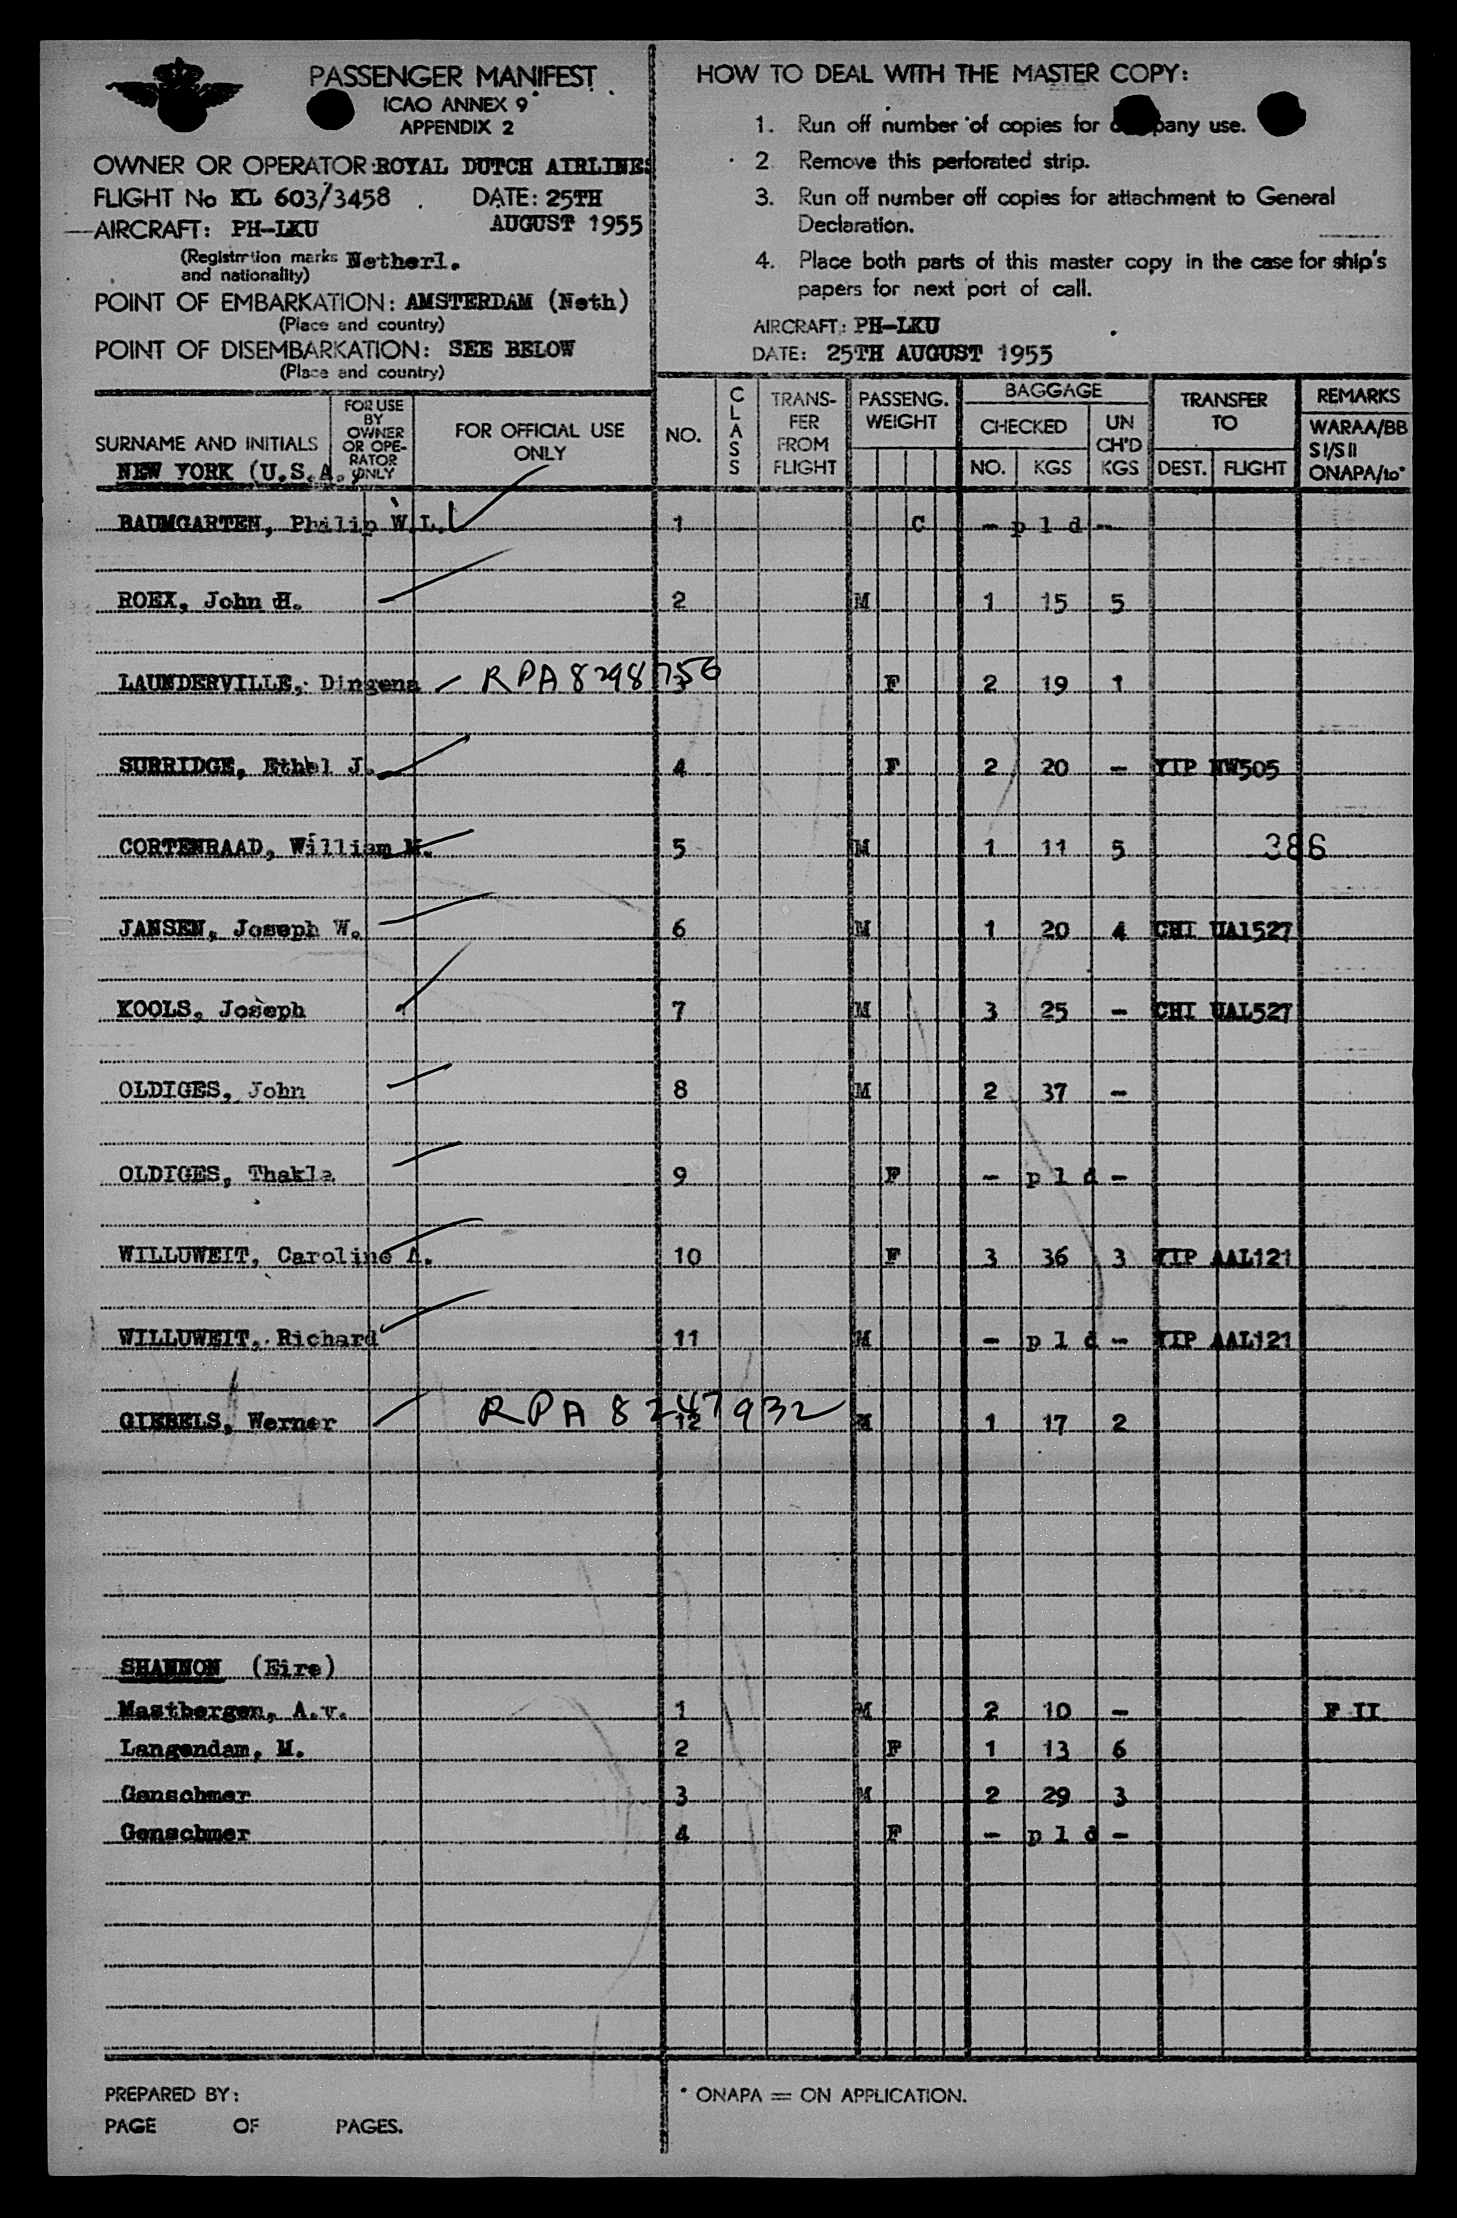 PASSENGER MANIFEST
ICAO ANNEX 9
APPENDIX 2
OWNER OR OPERATOR: ROYAL DUTCH AIRLINES
FLIGHT No KL 603/3458 DATE: 25TH
AIRCRAFT: PH-LKU AUGUST 1955
(Registration marks Netherl.
and nationality)
POINT OF EMBARKATION: AMSTERDAM (Neth)
(Place and country)
POINT OF DISEMBARKATION: SEE BELOW
(Place and country)
HOW TO DEAL WITH THE MASTER COPY:
1. Run off number of copies for company use.
2. Remove this perforated strip.
3. Run off number off copies for attachment to General
Declaration.
4. Place both parts of this master copy in the case for ship's
papers for next port of call.
AIRCRAFT: PH-LKU
DATE: 25TH AUGUST 1955
SURNAME AND INITIALS
FOR USE BY OWNER OR OPE-RATOR ONLY
FOR OFFICIAL USE ONLY
NO.
CLASS
TRANS-FER FROM FLIGHT
PASSENG. WEIGHT
BAGGAGE
CHECKED
NO. KGS
UN CH'D KGS
TRANSFER TO
DEST. FLIGHT
REMARKS
WARAA/BB
SI/SII
ONAPA/to*
NEW YORK (U.S.A.)
BAUMGARTEN, Philip W.L. 1 C - p l d -
ROEX, John H. 2 M 1 15 5
LAUNDERVILLE, Dingena RPA 8298756 3 F 2 19 1
SURRIDGE, Ethel J. 4 F 2 20 - YIP NW505
CORTENRAAD, William M. 5 M 1 11 5 386
JANSEN, Joseph W. 6 M 1 20 4 CHI UA1527
KOOLS, Joseph 7 M 3 25 - CHI UAL527
OLDIGES, John 8 M 2 37 -
OLDIGES, Thakla 9 F - p l d -
WILLUWEIT, Caroline A. 10 F 3 36 3 YIP AAL121
WILLUWEIT, Richard 11 M - p l d - YIP AAL121
GIEBELS, Werner RPA 8247932 12 M 1 17 2
SHANNON (Eire)
Mastbergen, A.v. 1 M 2 10 - F II
Langendam, M. 2 F 1 13 6
Genschmer 3 M 2 29 3
Genschmer 4 F - p l d -
PREPARED BY:
PAGE OF PAGES.
* ONAPA = ON APPLICATION.